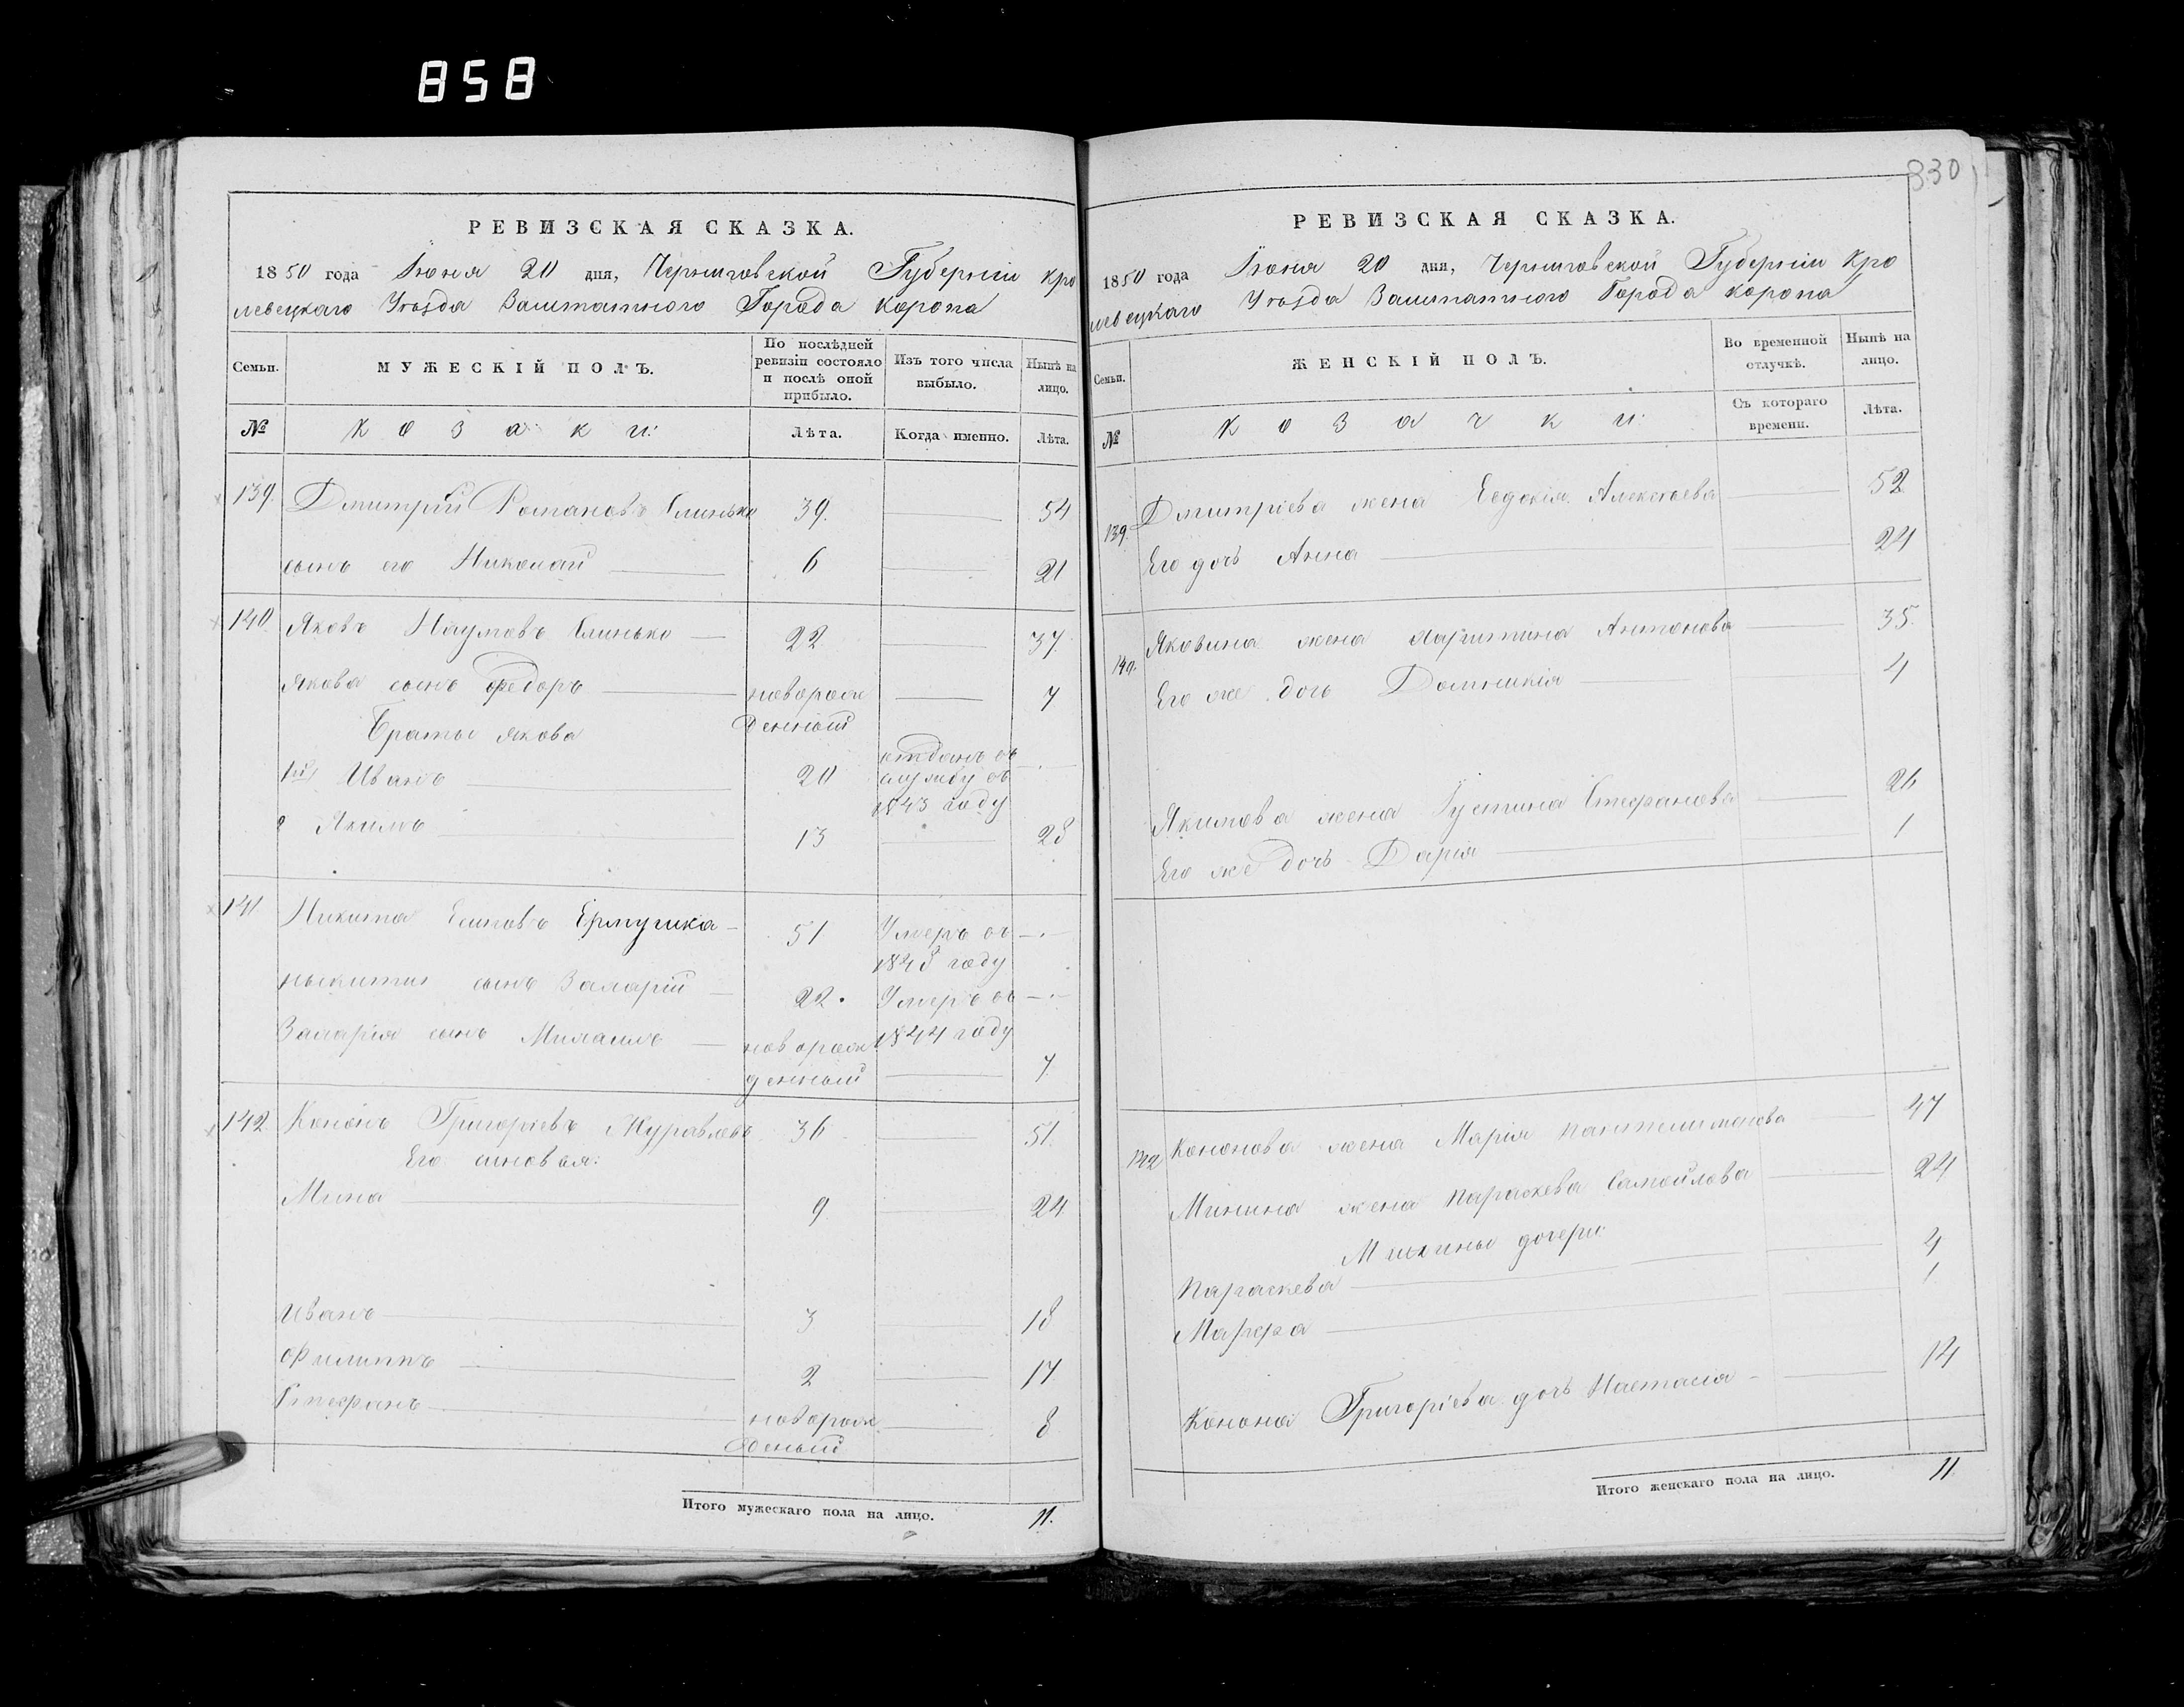 858
РЕВИЗСКАЯ СКАЗКА.
1850 года Іюня 20 дня, Черниговской Губерніи Кро
левецкаго Уѣзда Заштатного Города Коропа
Семьи.
МУЖЕСКІЙ ПОЛЪ.
По послѣдней ревизіи состояло и послѣ оной прибыло.
Изъ того числа выбыло.
Нынѣ на лицо.
№
Козаки:
Лѣта.
Когда именно.
Лѣта.
139. Дмитрий Романовъ Слинько 39. 54
сынъ его Николай 6 21
140 Яковъ Наумовъ Слинько 22 37
Якова сынъ Федоръ новорож 7
денный
Братья Якова
1й Иванъ 20 отданъ въ
службу въ
1843 году
2 Якимъ 13 28
141 Никита Есиповъ Ермушка 51 Умеръ въ
1848 году
сынъ Захарій 22. Умеръ въ
1844 году
Захарія сынъ Михаилъ новорож
денный 7
142 Кононъ Григоріевъ Журавлевъ 36 51.
Его синовья:
Мина 9 24
Иванъ 3 18
Филиппъ 2 17
Стефанъ новорож 8
деный
Итого мужескаго пола на лицо. 11.
330
РЕВИЗСКАЯ СКАЗКА.
1850 года Іюня 20 дня, Черниговской Губерніи Кро
левецкаго Уѣзда Заштатного Города Коропа
Семьи.
ЖЕНСКІЙ ПОЛЪ.
Во временной отлучкѣ.
Нынѣ на лицо.
№
Козачки:
Съ котораго времени.
Лѣта.
139. Дмитріева жена Евдокія Алексѣева 52
Его дочь Анна 24
140. Яковина жена Харитина Антонова 35.
Его же дочь Домникія 4
Якимова жена Густина Стефанова 26
Его же дочь Дарія 1
142 Кононова жена Марія Пантелимонова 47
Минина жена Параскева Самойлова 24
Минины дочери
Параскева 4
Марфа 1
Конона Григоріева дочь Настасія 14
Итого женскаго пола на лицо. 11.